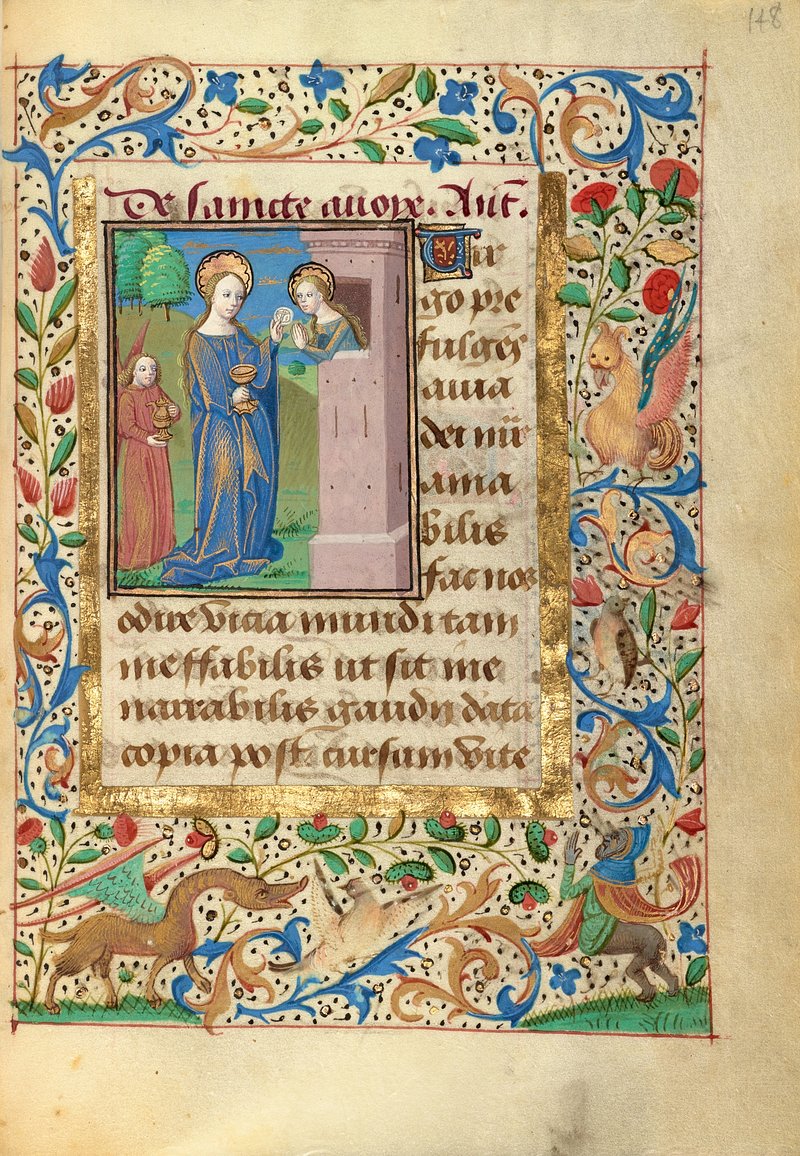 148
De sancte auoye. Ant̄.
Uir
go pre
fulgēs
auia
dei nr̄e
ama
bilis
fac nos
odire vicia mundi tam
ineffabilis ut sit ine
narrabilis gaudij data
copia post cursum vite